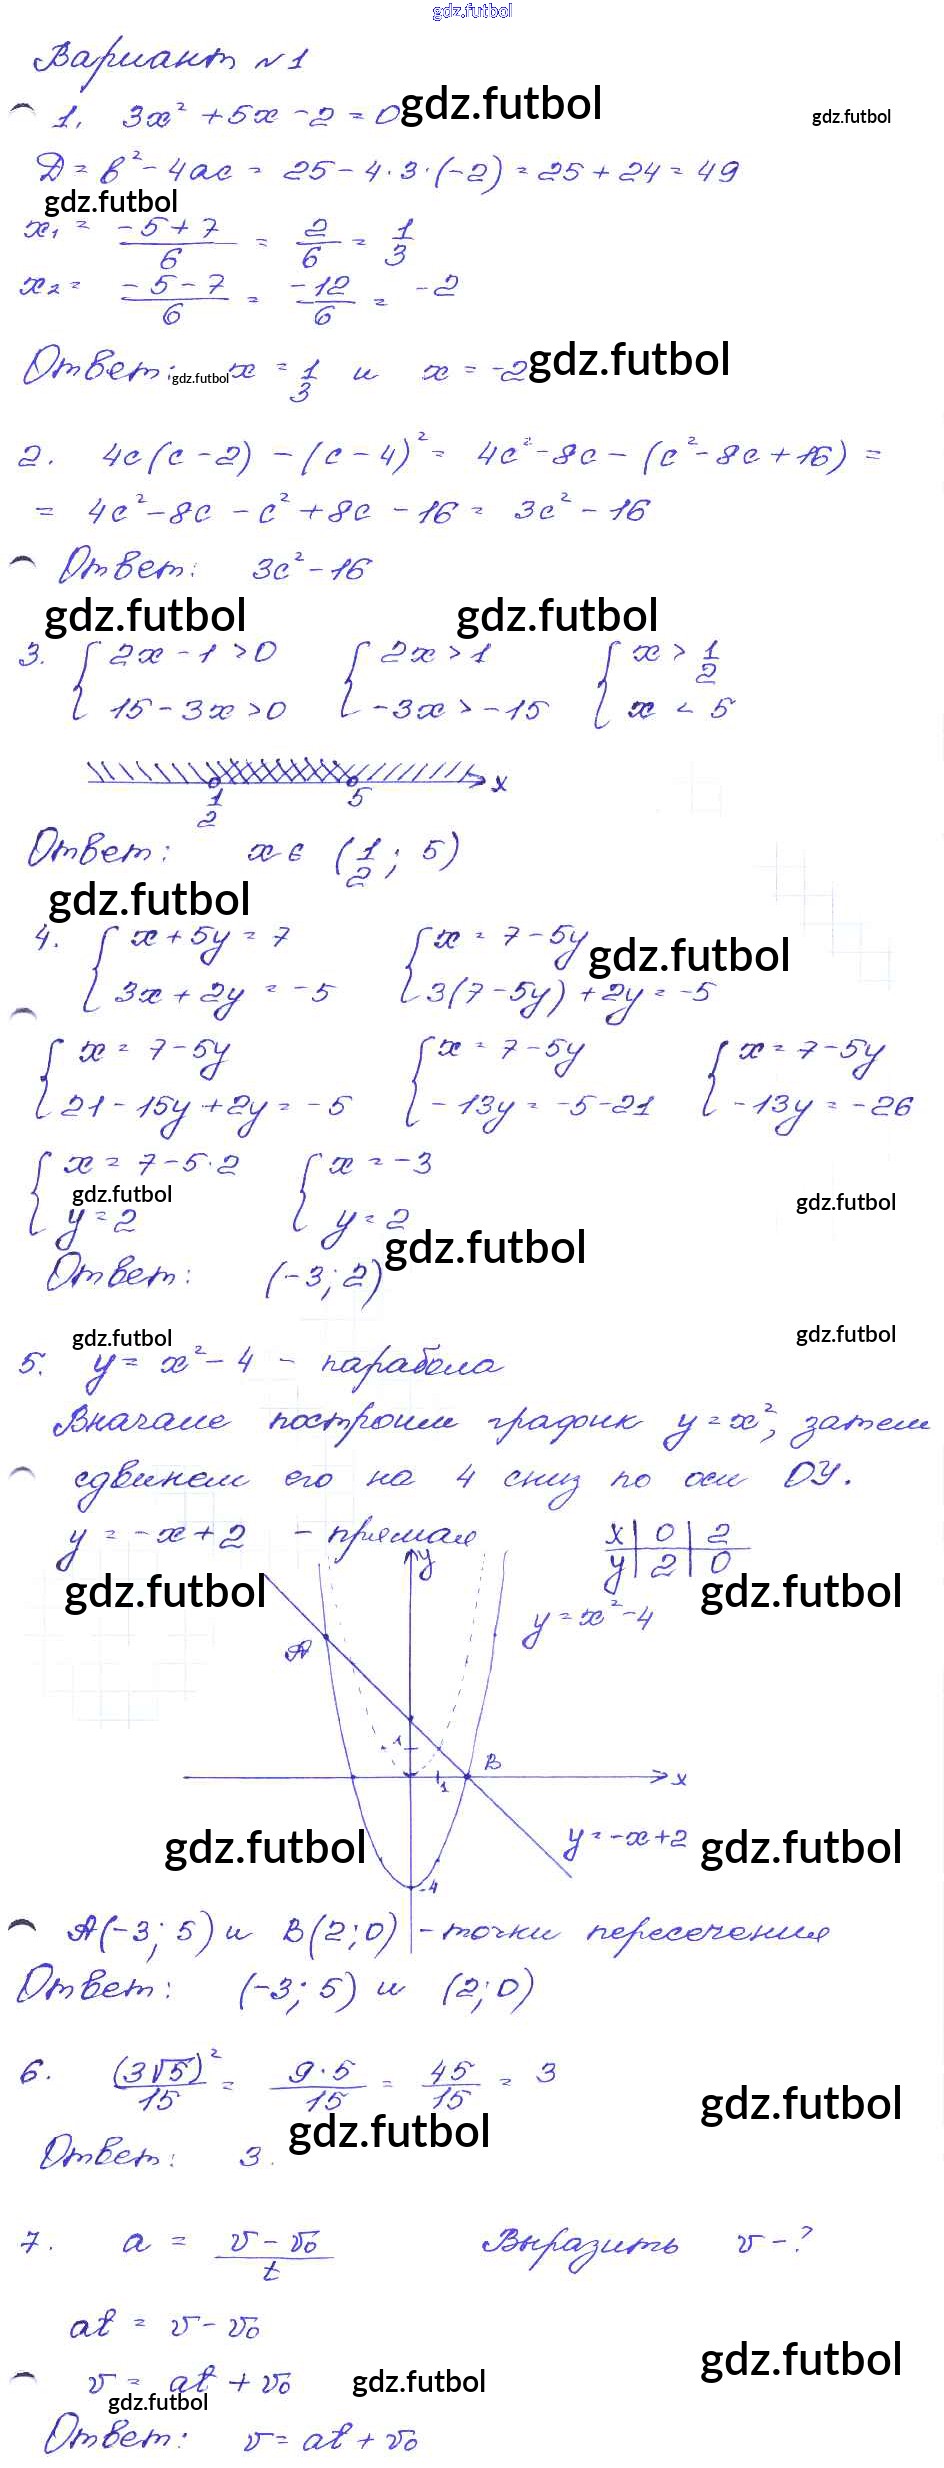 gdz.futbol
Вариант №1
1. 3x² + 5x - 2 = 0 gdz.futbol gdz.futbol
D = b² - 4ac = 25 - 4·3·(-2) = 25 + 24 = 49
gdz.futbol
x₁ = (-5+7)/6 = 2/6 = 1/3
x₂ = (-5-7)/6 = -12/6 = -2
Ответ: gdz.futbol x = 1/3 и x = -2 gdz.futbol
2. 4c(c-2) - (c-4)² = 4c² - 8c - (c² - 8c + 16) =
= 4c² - 8c - c² + 8c - 16 = 3c² - 16
Ответ: 3c² - 16
gdz.futbol gdz.futbol
3. { 2x - 1 > 0 { 2x > 1 { x > 1/2
15 - 3x > 0 -3x > -15 x < 5
1/2 5 x
Ответ: x ∈ (1/2; 5)
gdz.futbol
4. { x + 5y = 7 { x = 7 - 5y gdz.futbol
3x + 2y = -5 3(7-5y) + 2y = -5
{ x = 7 - 5y { x = 7 - 5y { x = 7 - 5y
21 - 15y + 2y = -5 -13y = -5-21 -13y = -26
{ x = 7 - 5·2 { x = -3
gdz.futbol gdz.futbol
y = 2 y = 2 gdz.futbol
Ответ: (-3; 2)
gdz.futbol gdz.futbol
5. y = x² - 4 - парабола
Вначале построим график y = x², затем
сдвинем его на 4 сниз по оси ОУ.
y = -x + 2 - прямая x | 0 | 2
y | 2 | 0
gdz.futbol y gdz.futbol
y = x² - 4
A
1 B
1 x
y = -x + 2
gdz.futbol gdz.futbol
-4
A(-3; 5) и B(2; 0) - точки пересечения
Ответ: (-3; 5) и (2; 0)
6. (3√5)²/15 = 9·5/15 = 45/15 = 3
gdz.futbol gdz.futbol
Ответ: 3.
7. a = (v - v₀)/t Выразить v - ?
at = v - v₀
gdz.futbol
v = at + v₀ gdz.futbol
gdz.futbol
Ответ: v = at + v₀